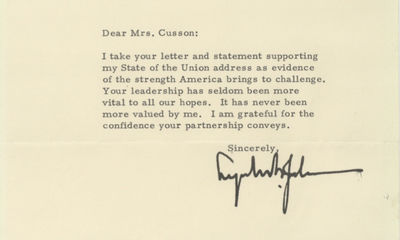 Dear Mrs. Cusson:
I take your letter and statement supporting
my State of the Union address as evidence
of the strength America brings to challenge.
Your leadership has seldom been more
vital to all our hopes. It has never been
more valued by me. I am grateful for the
confidence your partnership conveys.
Sincerely,